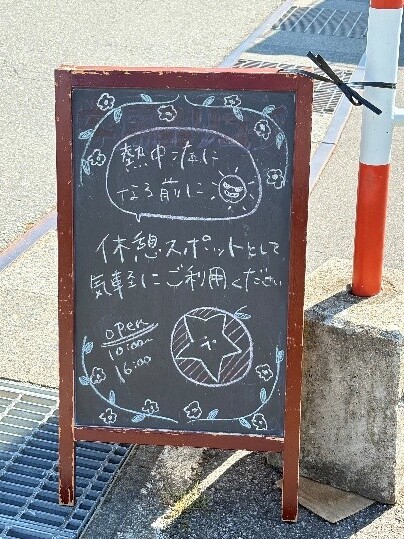 熱中症に
なる前に
休憩スポットとして
気軽にご利用ください
open
10:00〜
16:00